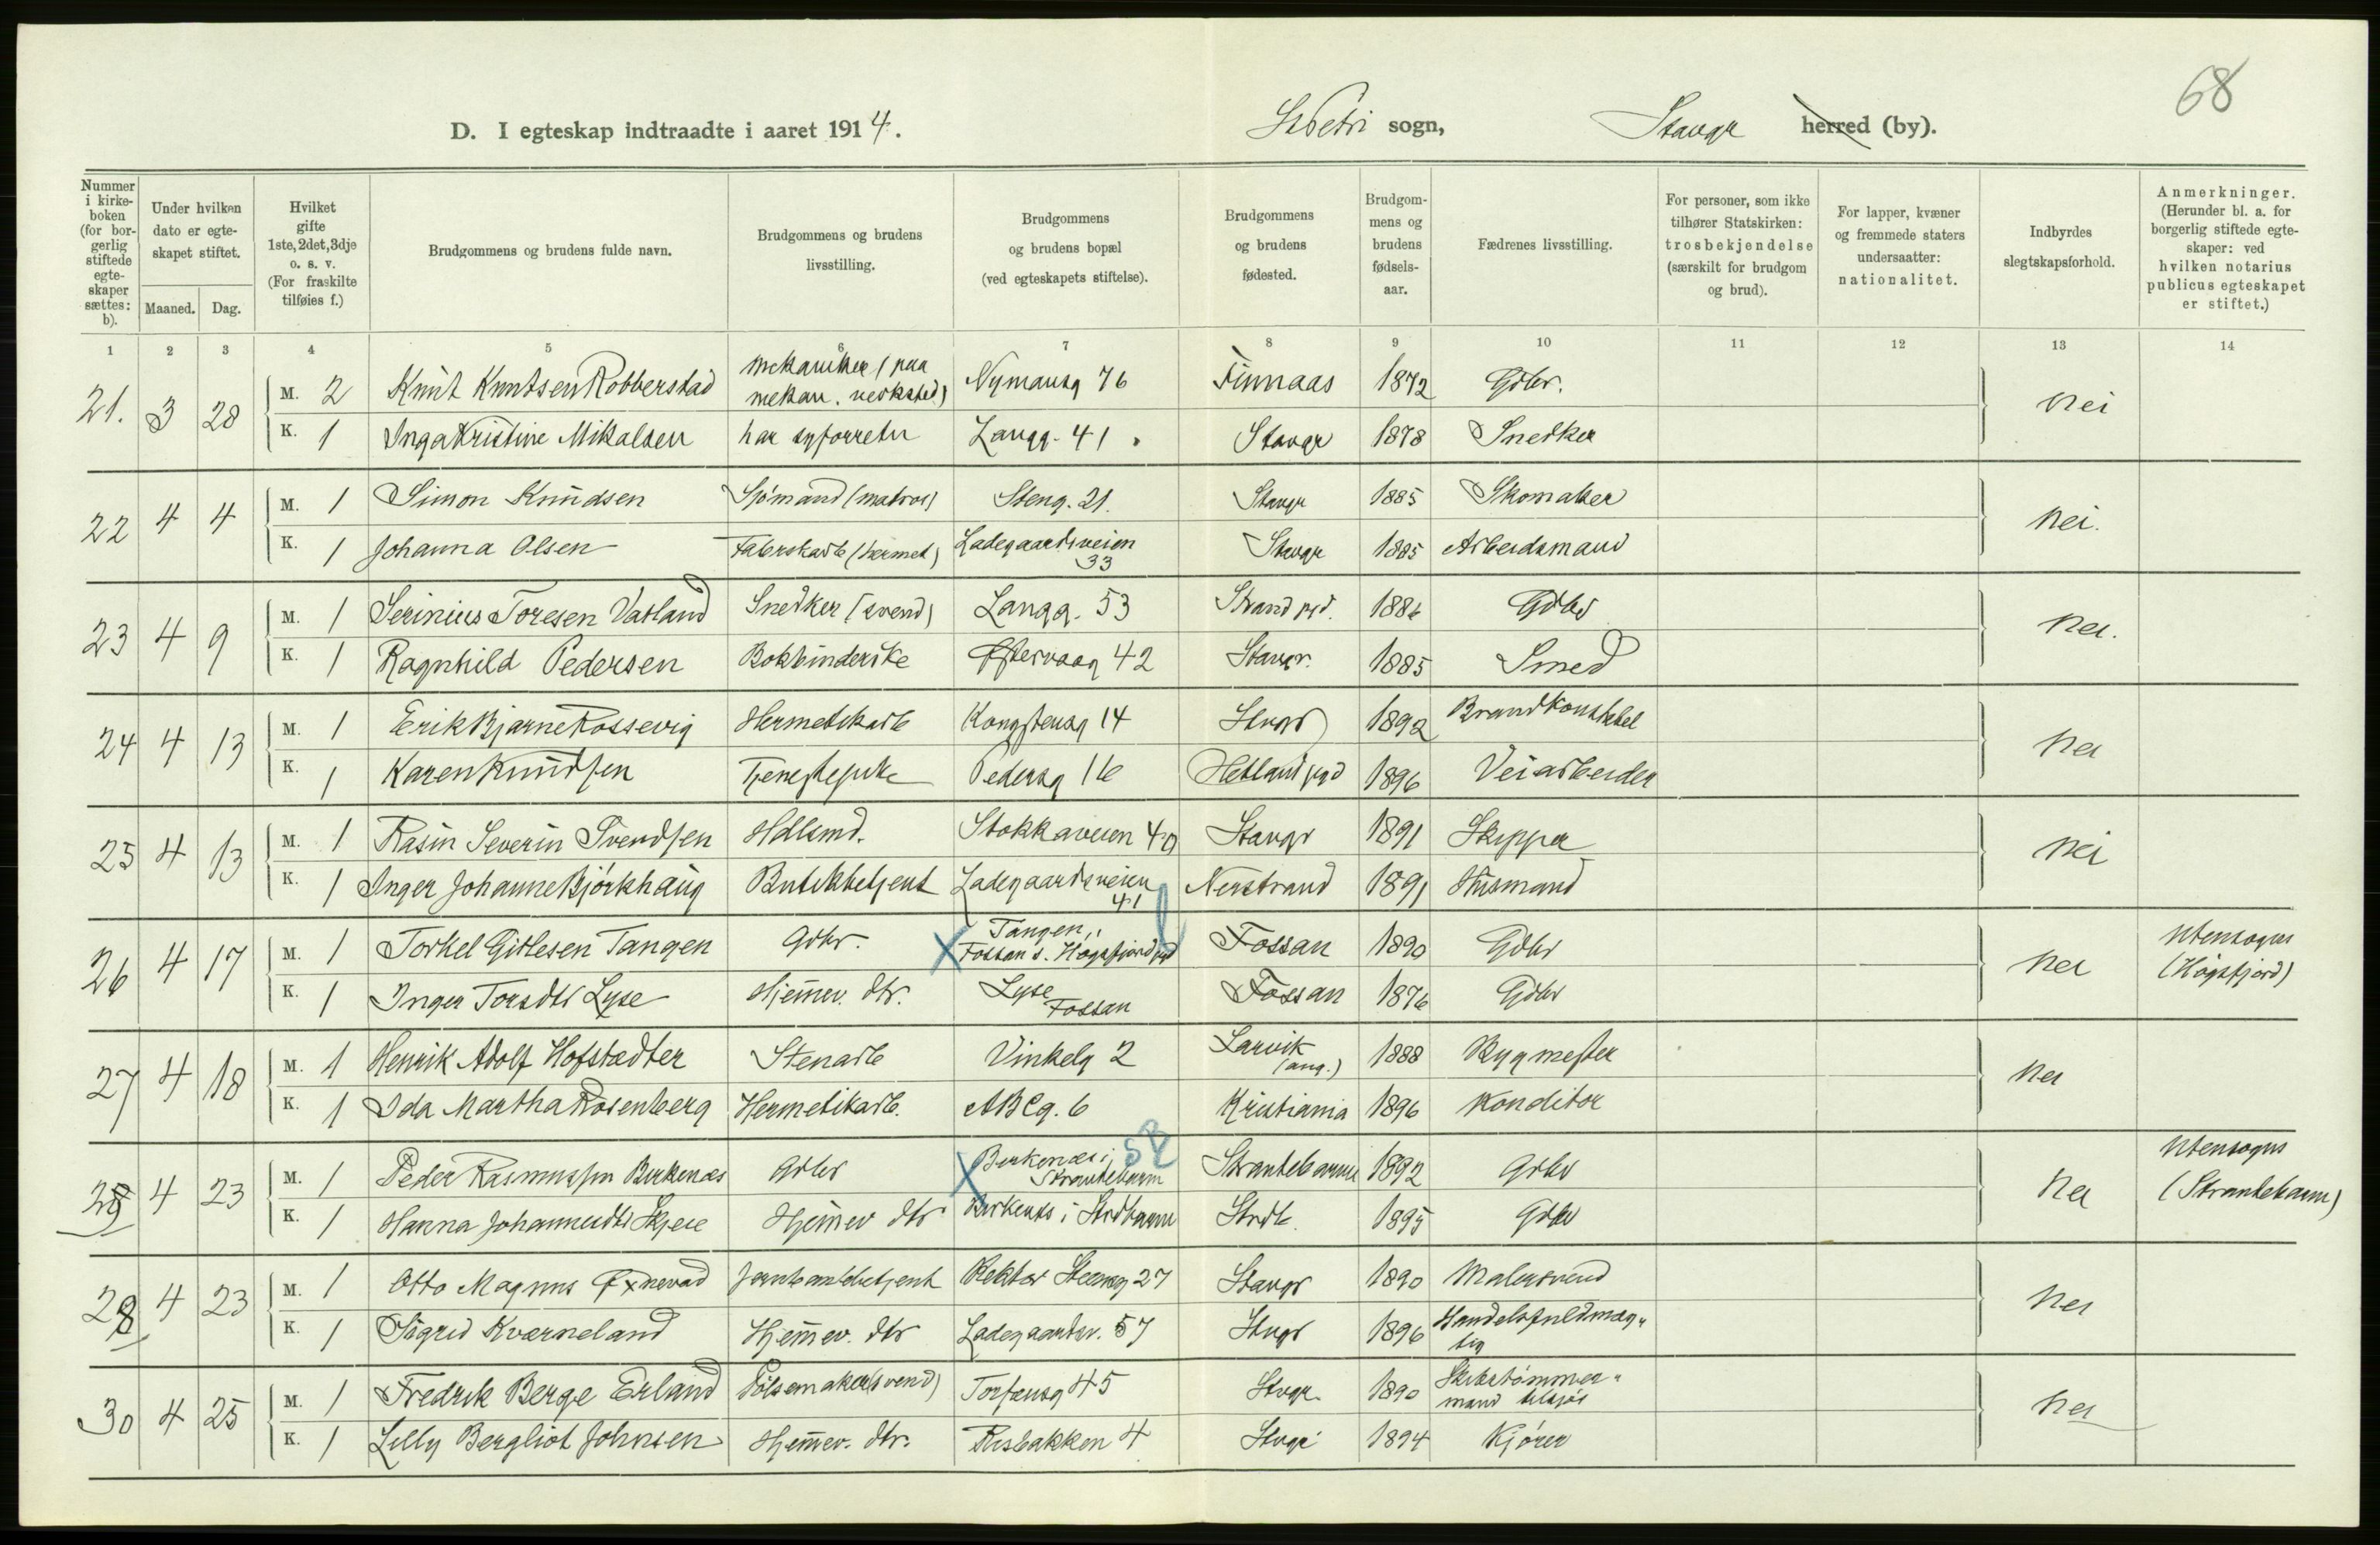 68
D. I egteskap indtraadte i aaret 1914. St Petri sogn, Stavgr herred (by).
Nummer i kirkeboken (for borgerlig stiftede egteskaper sættes: b).
Under hvilken dato er egteskapet stiftet.
Maaned. Dag.
Hvilket gifte 1ste, 2det, 3dje o. s. v. (For fraskilte tilføies f.)
Brudgommens og brudens fulde navn.
Brudgommens og brudens livsstilling.
Brudgommens og brudens bopæl (ved egteskapets stiftelse).
Brudgommens og brudens fødested.
Brudgommens og brudens fødselsaar.
Fædrenes livsstilling.
For personer, som ikke tilhører Statskirken: trosbekjendelse (særskilt for brudgom og brud).
For lapper, kvæner og fremmede staters undersaatter: nationalitet.
Indbyrdes slegtskapsforhold.
Anmerkninger. (Herunder bl. a. for borgerlig stiftede egteskaper: ved hvilken notarius publicus egteskapet er stiftet.)
1 2 3 4 5 6 7 8 9 10 11 12 13 14
21. 3 28 M. 2 Knut Knutsen Robberstad mekaniker (paa mekan. verksted) Nymansg 76 Finnaas 1872 Gdbr. nei
K. 1 Inga Kristine Mikalsen har syforretn Langg. 41. Stavgr 1878 Snedker
22 4 4 M. 1 Simon Knudsen Sjømand (matros) Steng. 21. Stavgr 1885 Skomaker nei.
K. 1 Johanna Olsen Fabrikarb (hermet) Ladegaardsveien 33 Stavgr 1885 Arbeidsmand
23 4 9 M. 1 Serinius Toresen Vatland Snedker (svend) Langg. 53 Strand pgd. 1886 Gdbr nei.
K. 1 Ragnhild Pedersen Bokbinderske Østervaag 42 Stavgr. 1885 Smed
24 4 13 M. 1 Erik Bjarne Rossevig Hermetikarb Kongstensg 14 Stvgr 1892 Brandkonstabel nei
K. 1 Karen Knudsen Tjenestepike Pedersg 16 Hetland pgd 1896 Veiarbeider
25 4 13 M. 1 Rasin Severin Svendsen Hdlsmd. Stokkaveien 40 Stavgr 1891 Skipper nei
K. 1 Inger Johanne Bjørkhaug Butikbetjent Ladegaardsveien 41 Nerstrand 1891 Husmand
26 4 17 M. 1 Torkel Gitlesen Tangen Gdbr. Tangen, Fossan s. Høgsfjord pgd Fossan 1890 Gdbr nei Utensogns (Høgsfjord)
K. 1 Inger Torsdtr Lyse Hjemmev. dtr. Lyse Fossan Fossan 1876 Gdbr
27 4 18 M. 1 Henrik Adolf Hofstædter Stenarb Vinkelg 2 Larvik (ang.) 1888 Bygmester nei
K. 1 Ida Martha Rosenberg Hermetikarb. ABCg. 6 Kristiania 1896 Konditor
28 4 23 M. 1 Peder Rasmussen Birkenæs Gdbr Birkenæs i Strandebarm Strandebarm 1892 Gdbr nei Utensogns (Strandebarm)
K. 1 Hanna Johannesdtr Skjeie Hjemmev dtr Birkenæs i Strdbarm Strdb. 1895 Gdbr
29 4 23 M. 1 Otto Magnus Øxnevad Jernbanebetjent Rektor Steensg 27 Stavgr 1890 Malersvend nei
K. 1 Sigrid Kværneland Hjemmev. dtr Ladegaardsv. 57 Stvgr 1896 Handelsfuldmægtig
30 4 25 M. 1 Fredrik Berge Erland Pølsemaker (svend) Torfæusg 45 Stvgr. 1890 Skibstømmermand tilsjøs nei
K. 1 Lilly Bergliot Johnsen Hjemmev. dtr. Risbakken 4 Stvgr 1894 Kjører